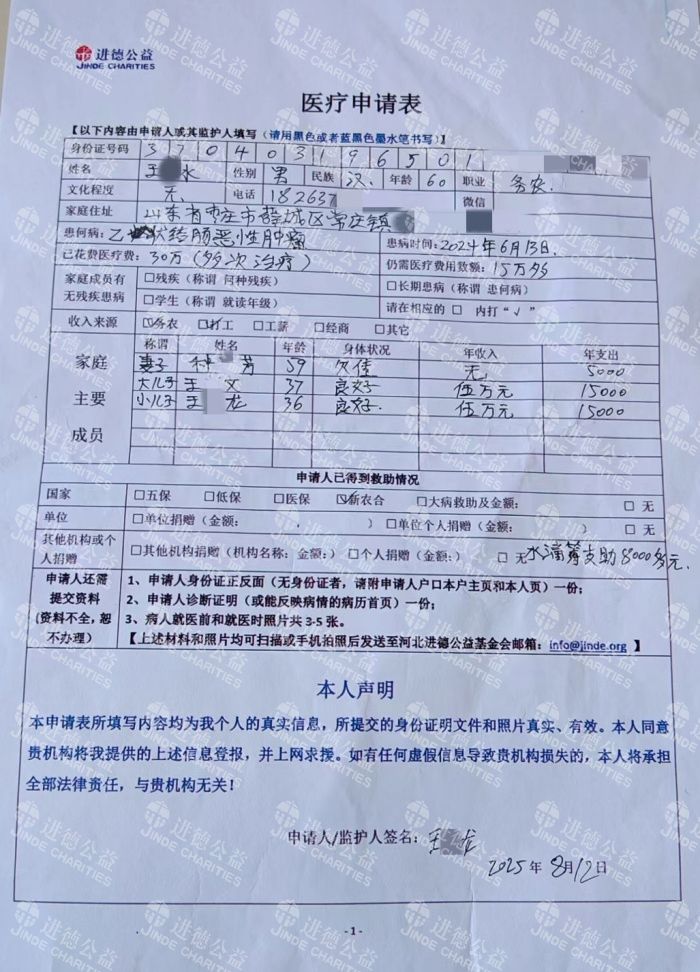 进德公益
JINDE CHARITIES
医疗申请表
【以下内容由申请人或其监护人填写（请用黑色或者蓝黑色墨水笔书写）】
身份证号码 3 7 0 4 0 3 1 9 6 5 0 1
姓名 王 水 性别 男 民族 汉. 年龄 60 职业 务农.
文化程度 无. 电话 182637 微信
家庭住址 山东省枣庄市薛城区常庄镇
患何病: 乙状结肠恶性肿瘤 患病时间: 2024年6月13日.
已花费医疗费: 30万（多次治疗） 仍需医疗费用数额: 15万多
家庭成员有无残疾患病 □残疾（称谓 何种残疾） □长期患病（称谓 患何病）
□学生（称谓 就读年级） 请在相应的 □ 内打“√”
收入来源 ☑务农 ☑打工 □工薪 □经商 □其它
家庭主要成员 称谓 姓名 年龄 身体状况 年收入 年支出
妻子 芳 59 欠佳 无 5000
大儿子 王 文 37 良好 伍万元 15000
小儿子 王 龙 36 良好. 伍万元 15000
申请人已得到救助情况
国家 □五保 □低保 □医保 ☑新农合 □大病救助及金额: □ 无
单位 □单位捐赠（金额: ） □单位个人捐赠（金额: ） □ 无
其他机构或个人捐赠 □其他机构捐赠（机构名称: 金额:） □个人捐赠（金额:） □ 无 水滴筹支助8000多元.
申请人还需提交资料（资料不全，恕不办理）
1、申请人身份证正反面（无身份证者，请附申请人户口本户主页和本人页）一份;
2、申请人诊断证明（或能反映病情的病历首页）一份;
3、病人就医前和就医时照片共 3-5 张。
【上述材料和照片均可扫描或手机拍照后发送至河北进德公益基金会邮箱: info@jinde.org 】
本人声明
本申请表所填写内容均为我个人的真实信息，所提交的身份证明文件和照片真实、有效。本人同意
贵机构将我提供的上述信息登报，并上网求援。如有任何虚假信息导致贵机构损失的，本人将承担
全部法律责任，与贵机构无关！
申请人/监护人签名: 王 龙
2025年 8月12日
- 1 -